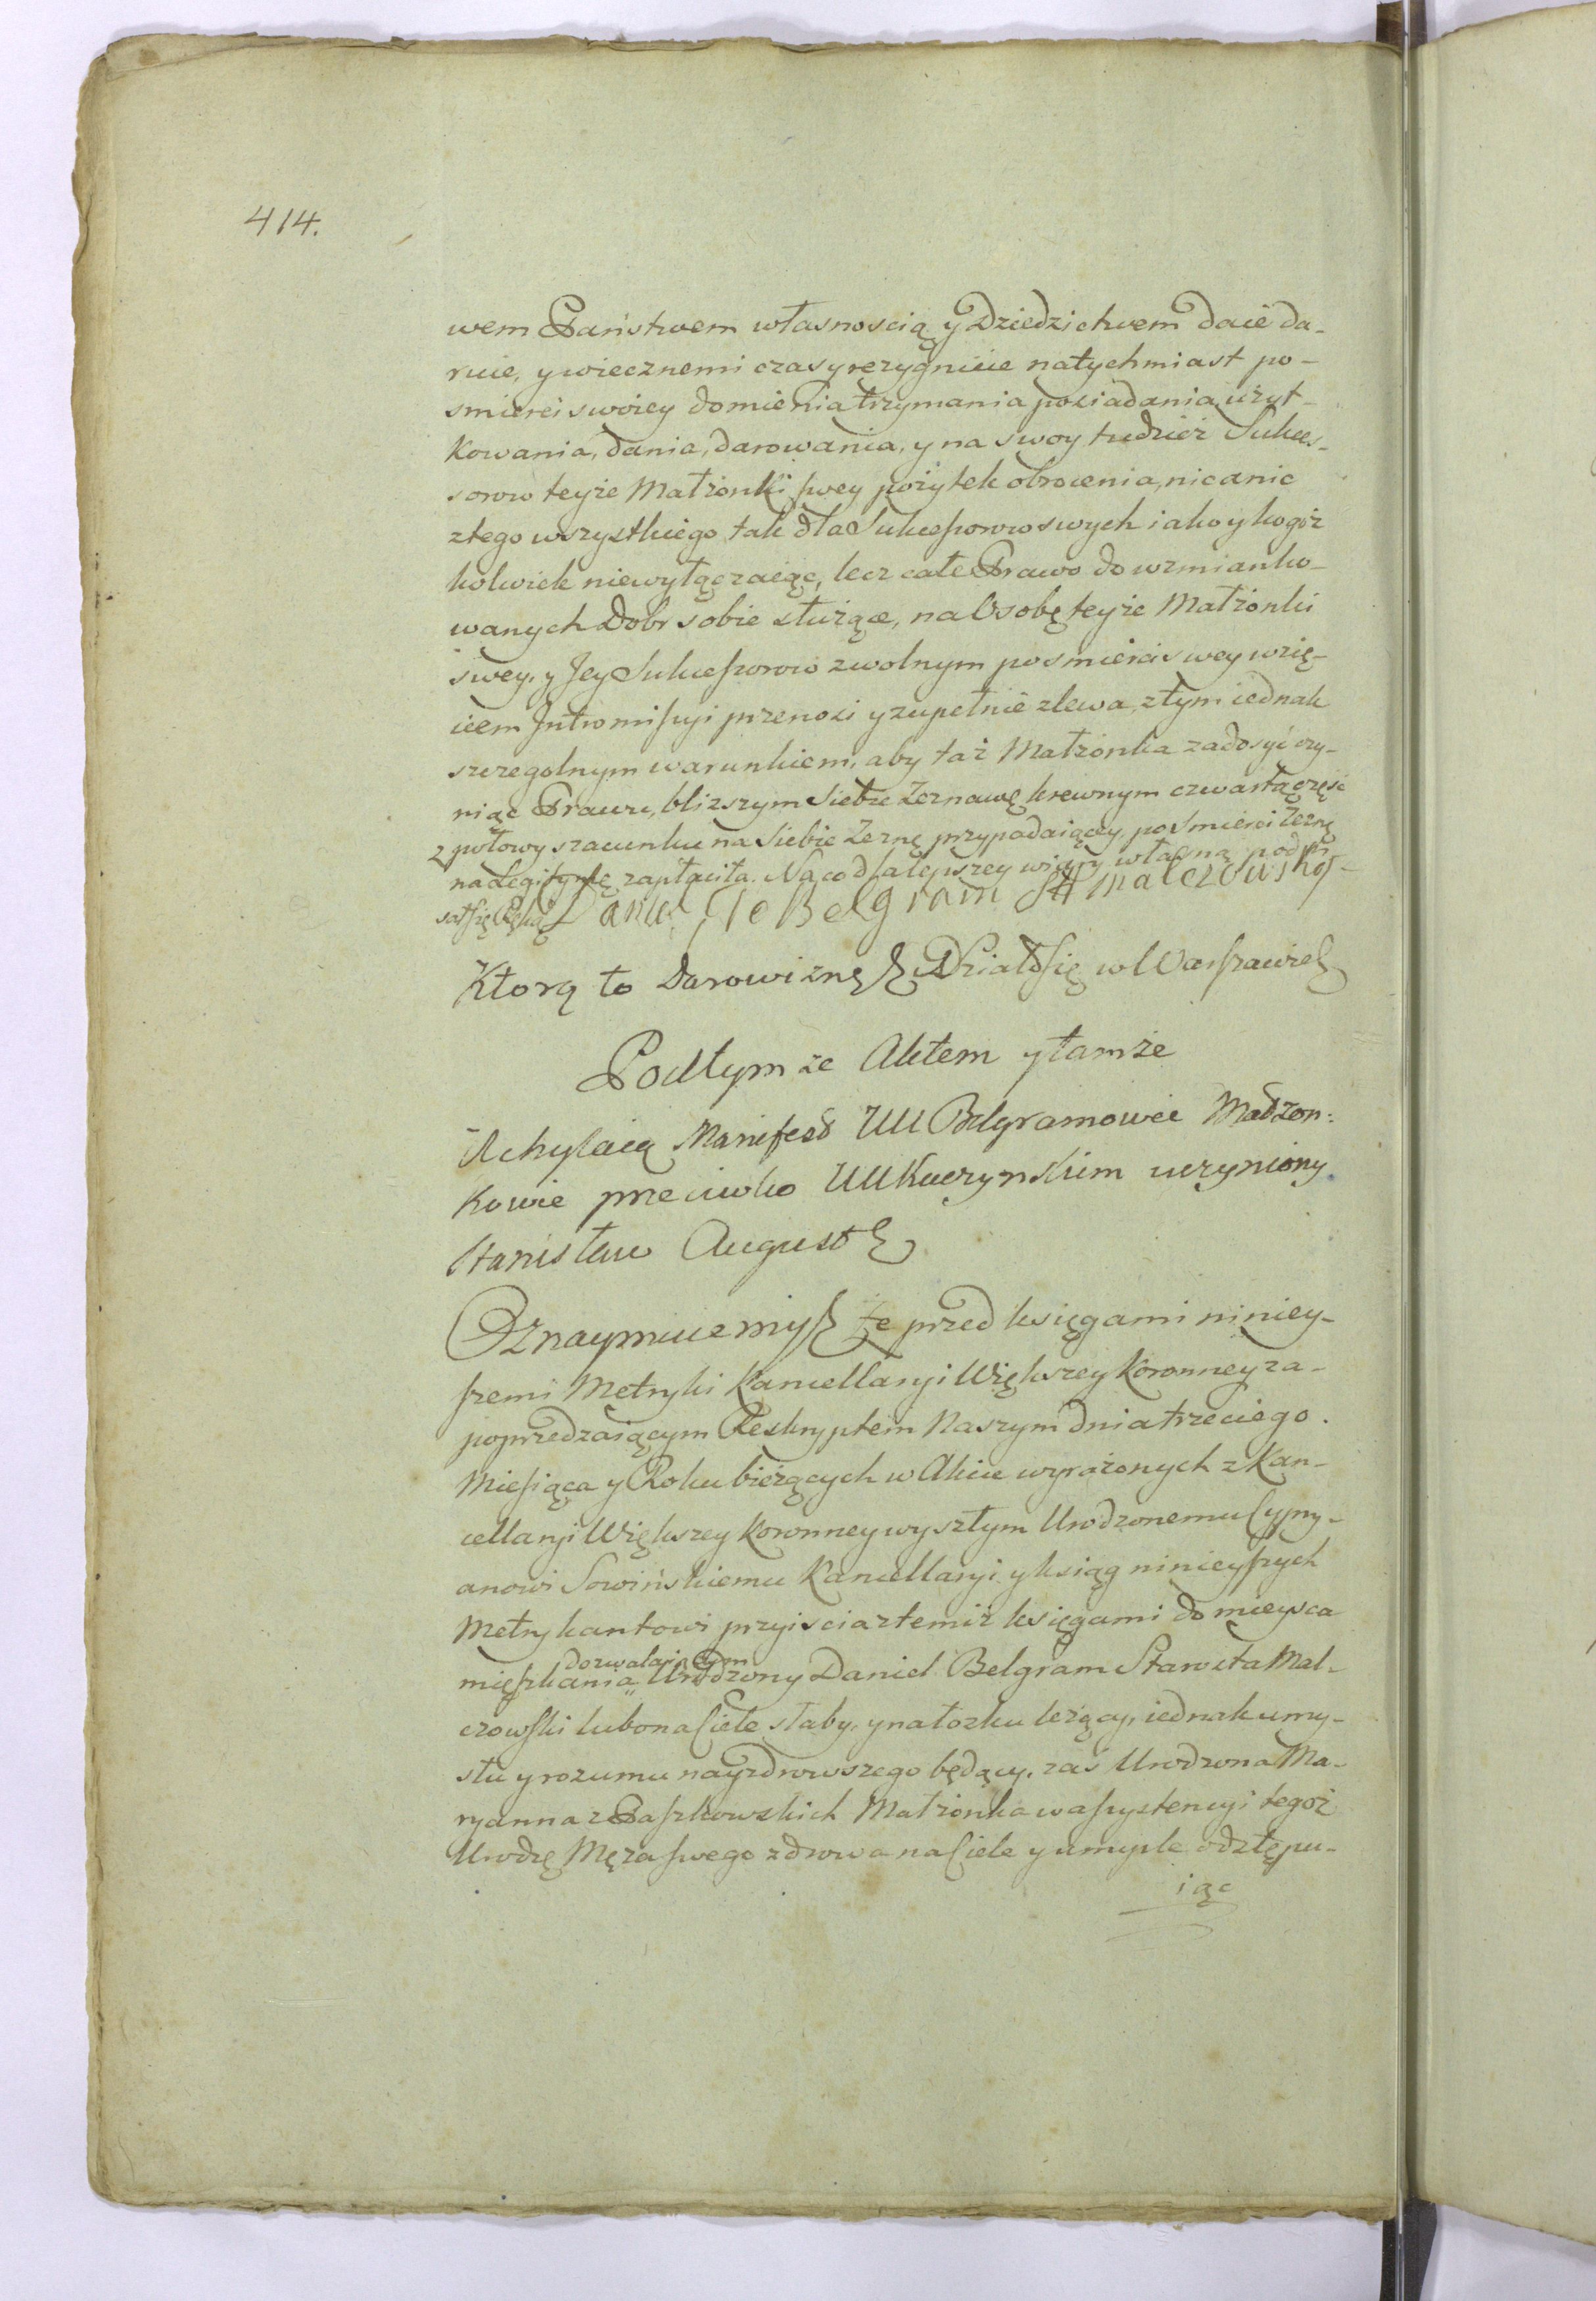 414.
wem Państwem własnoscią y Dziedzictwem daie da-
ruie, y wiecznemi czasy rezygnuie natychmiast po-
smierci swoiey do mienia trzymania posiadania użyt-
kowania, dania, darowania, y na swoy tudzież Sukces-
sorow teyże Małżonki swey pożytek obrocenia, nic a nic
z tego wszystkiego, tak dla Sukcessorow swych iako y kogoż
kolwiek niewyłączaiąc, lecz całe Prawo do wzmianko-
wanych Dobr sobie służące, na Osobę teyże Małżonki
swey, y Jey Sukcessorow z wolnym po smierci swey wzię-
ciem Intromissyi przenosi y zupełnie zlewa, z tym iednak
szczegolnym warunkiem, aby taż Małżonka zadosyć czy-
niąc Prawu, bliższym Siebie Zeznawę krewnym czwartą częsc
z połowy szacunku na Siebie Zeznę przypadaiącey, po Smierci Zeznę
na Legitymę zapłaciła. Na co dla lepszey wiary własną podpi-
sał się Ręką Daniel de Belgram St Malczowsky
Ktorą to Darowiznę & Działo się w Warszawie &
Pod tymże Aktem y tamże
Uchylaią Manifest UU Belgramowie Małżon:
kowie przeciwko UU Kuczynskim uczyniony
Stanisław August &
Oznaymuiemy & że przed księgami niniey-
szemi Metryki Kancellaryi Większey Koronney za-
poprzedzaiącym Reskryptem Naszym dnia trzeciego
Miesiąca y Roku bieżących w Akcie wyrażonych z Kan-
cellaryi Większey Koronney wyszłym Urodzonemu Cypry-
anowi Sowińskiemu Kancellaryi y ksiąg ninieyszych
Metrykantowi przyiscia z temiż księgami do mieysca
dozwalaiącym
mięszkania Urodzony Daniel Belgram Starosta Mal-
czowski lubo na Ciele słaby, y na łożku leżący, iednak umy-
słu y rozumu nayzdrowszego będący, zaś Urodzona Ma-
ryanna z Paszkowskich Małżonka w assystencyi tegoż
Urodzę Męża swego zdrowa na Ciele y umysle odstępu-
iąc